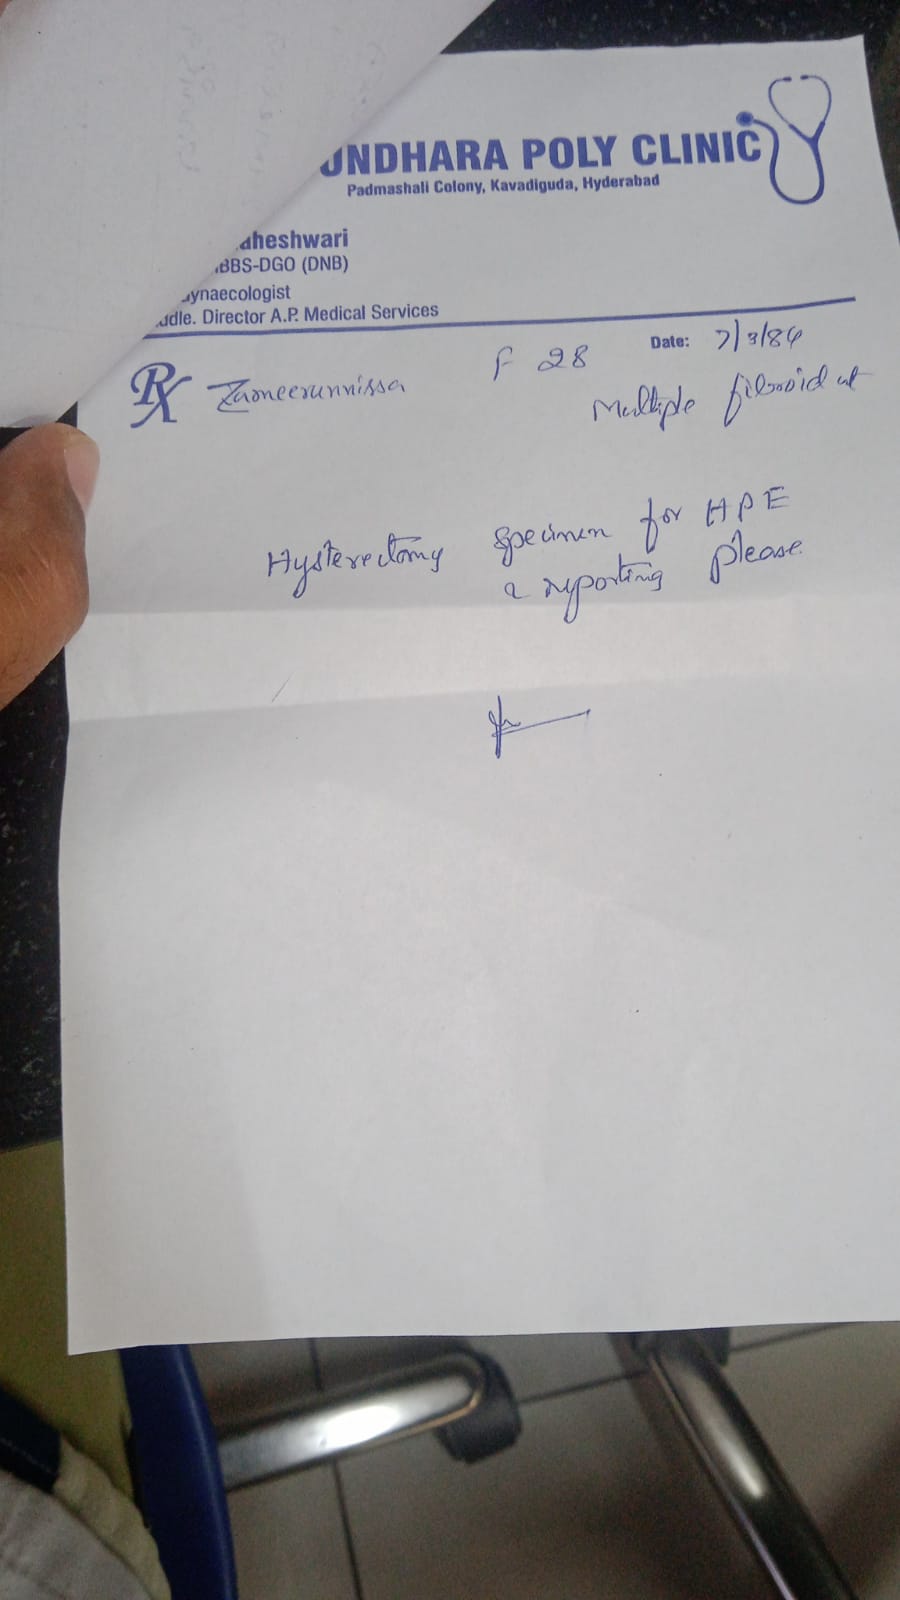 UNDHARA POLY CLINIC
Padmashali Colony, Kavadiguda, Hyderabad
aheshwari
BBS-DGO (DNB)
ynaecologist
ddle. Director A.P. Medical Services
Rx Zameerunnissa F 28 Date: 7/3/84
Multiple fibroid ut
Hysterectomy specimen for HPE
& reporting please